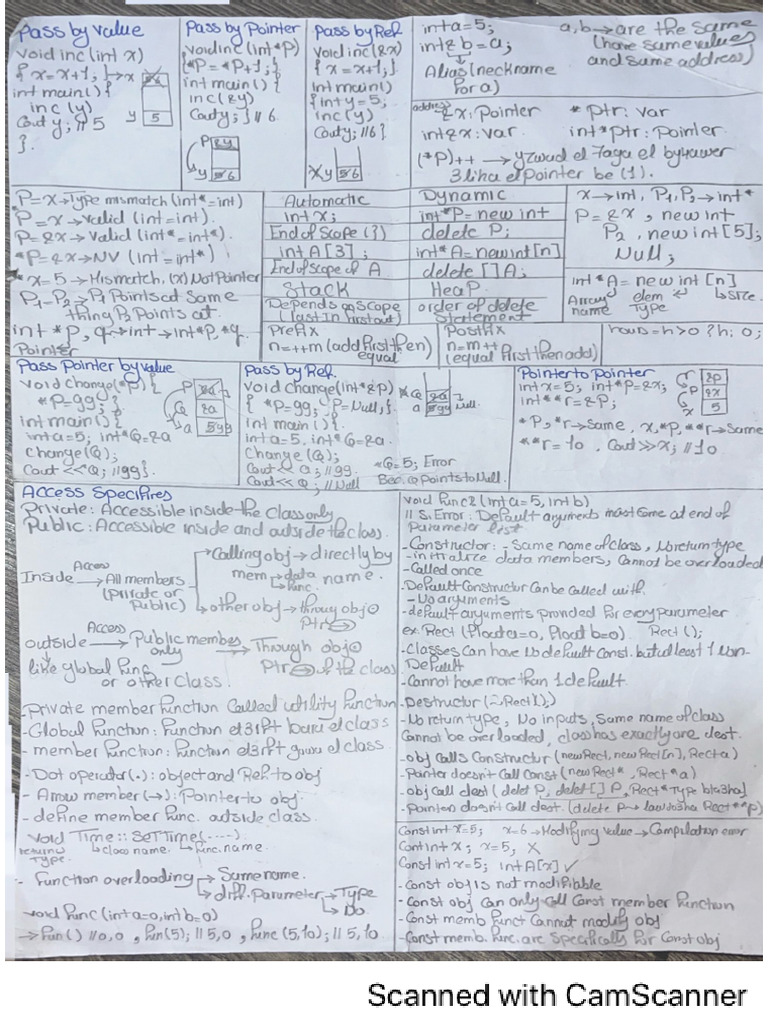 Pass by value
void inc(int x)
{ x=x+1; } → x
int main(){
inc(y)
Cout y; // 5
}.
y 5
Pass by Pointer
void inc(int *P)
{*P = *P+1;}
int main(){
inc(&y)
Cout y; } // 6
P &y
y 5 6
Pass by Ref
Void inc(&x)
{ x=x+1; }
Int main()
{ int y=5;
inc(y)
Cout y; // 6 }
x y 5 6
int a=5;
int & b = a;
Alias (neckname
for a)
a,b → are the same
(have same values
and same address)
address
&x: Pointer
int & x: var.
* ptr: var
int * ptr: Pointer.
(*P)++ → yzwad el 7aga el byshawer
3liha el pointer be (1).
P=x → Type mismatch (int* = int)
*P=x → valid (int=int).
P=&x → Valid (int* = int*).
*P=&x → NV (int = int*)
*x=5 → Mismatch, (x) Not Pointer
P1=P2 → P1 Points at Same
thing P2 Points at.
int *P, q → int → int *P, *q.
Pointer
Automatic
int x;
End of Scope (})
int A[3];
End of scope of A
Stack
Depends on Scope
(last In first out)
Dynamic
int *P = new int
delete P;
int* A = new int[n]
delete [] A;
Heap
order of delete
Statement
x → int, P1, P2 → int*
P = &x, new int
P2, new int [5];
Null;
int * A = new int [n]
Array name
elem Type
Size
Prefix
n=++m (add first then
equal)
Postfix
n=m++
(equal first then add)
hours = h>0 ? h: 0;
Pass Pointer by value
void change(*P) {
*P=99; }
int main(){
int a=5; int *Q=&a
Change(Q);
Cout << *Q; //99}.
P &a
Q &a
a 5 99
Pass by Ref.
void change(int *&P)
{ *P=99; P=Null; }
int main(){
int a=5, int *Q=&a.
Change (Q);
Cout << a; // 99
Cout << Q; // Null
*Q=5; Error
Bec. Q Points to Null.
Pointer to Pointer
int x=5; int *P=&x;
int **r=&P;
*P, **r → same, x, *P, **r → Same
**r = 10, Cout >> x; // 10
r &P
P &x
x 5
Access Specifires
Private: Accessible inside the class only
Public: Accessible inside and outside the class.
Access
Inside → All members
(private or
Public)
Calling obj → directly by
mem → data name.
func.
other obj → throug obj ⊙
Ptr →
Access
outside → Public membes → Through obj ⊙
only
Ptr → of the class
like global func
or other Class.
- Private member function Called utility function
- Global function: Function el3rft bara el class
- member function: Function el3rft gowa el class.
- Dot operator (.): object and Ref to obj
- Arrow member (→): Pointer to obj
- define member func. outside class.
void Time :: SetTime(.....)
return Type.
class name.
func. name
- Function overloading → Same name.
diff. Parameter → Type
No
- void func (int a=0, int b=0)
→ fun() // 0,0, fun(5); // 5,0, func (5,10); // 5, 10
void func 2 (int a=5, int b)
// S. Error: Default arguments must come at end of
Parameter list
- Constructor: - Same name of class, No return type
- initialize data members, Cannot be overloaded
- Called once
- Default Constructor Can be called with
- No arguments
- default arguments provided for every parameter
ex. Rect (float a=0, float b=0). Rect ();
- Classes Can have No default Const. but at least 1 Non-
Default
- Cannot have more than 1 default.
- Destructor (~Rect();)
- No return type, No inputs, Same name of class
Cannot be overloaded, class has exactly one dest.
- obj calls Constructor (new Rect, new Rect[n], Rect a)
- Pointer doesn't Call Const (new Rect*, Rect *a)
- obj call dest (delet P, delet [] P, Rect *
- Pointer doesn't Call dest. (delete P → Rect **P)
Const int x=5; x=6 → Modifying value → Compilation error
Const int x; x=5; X
Const int x=5; int A[x] ✓
- Const obj is not modifiable
- Const obj Can only Call Const member function
- Const memb Funct Cannot modify obj
- Const memb. func. are Specifically for Const obj
Scanned with CamScanner